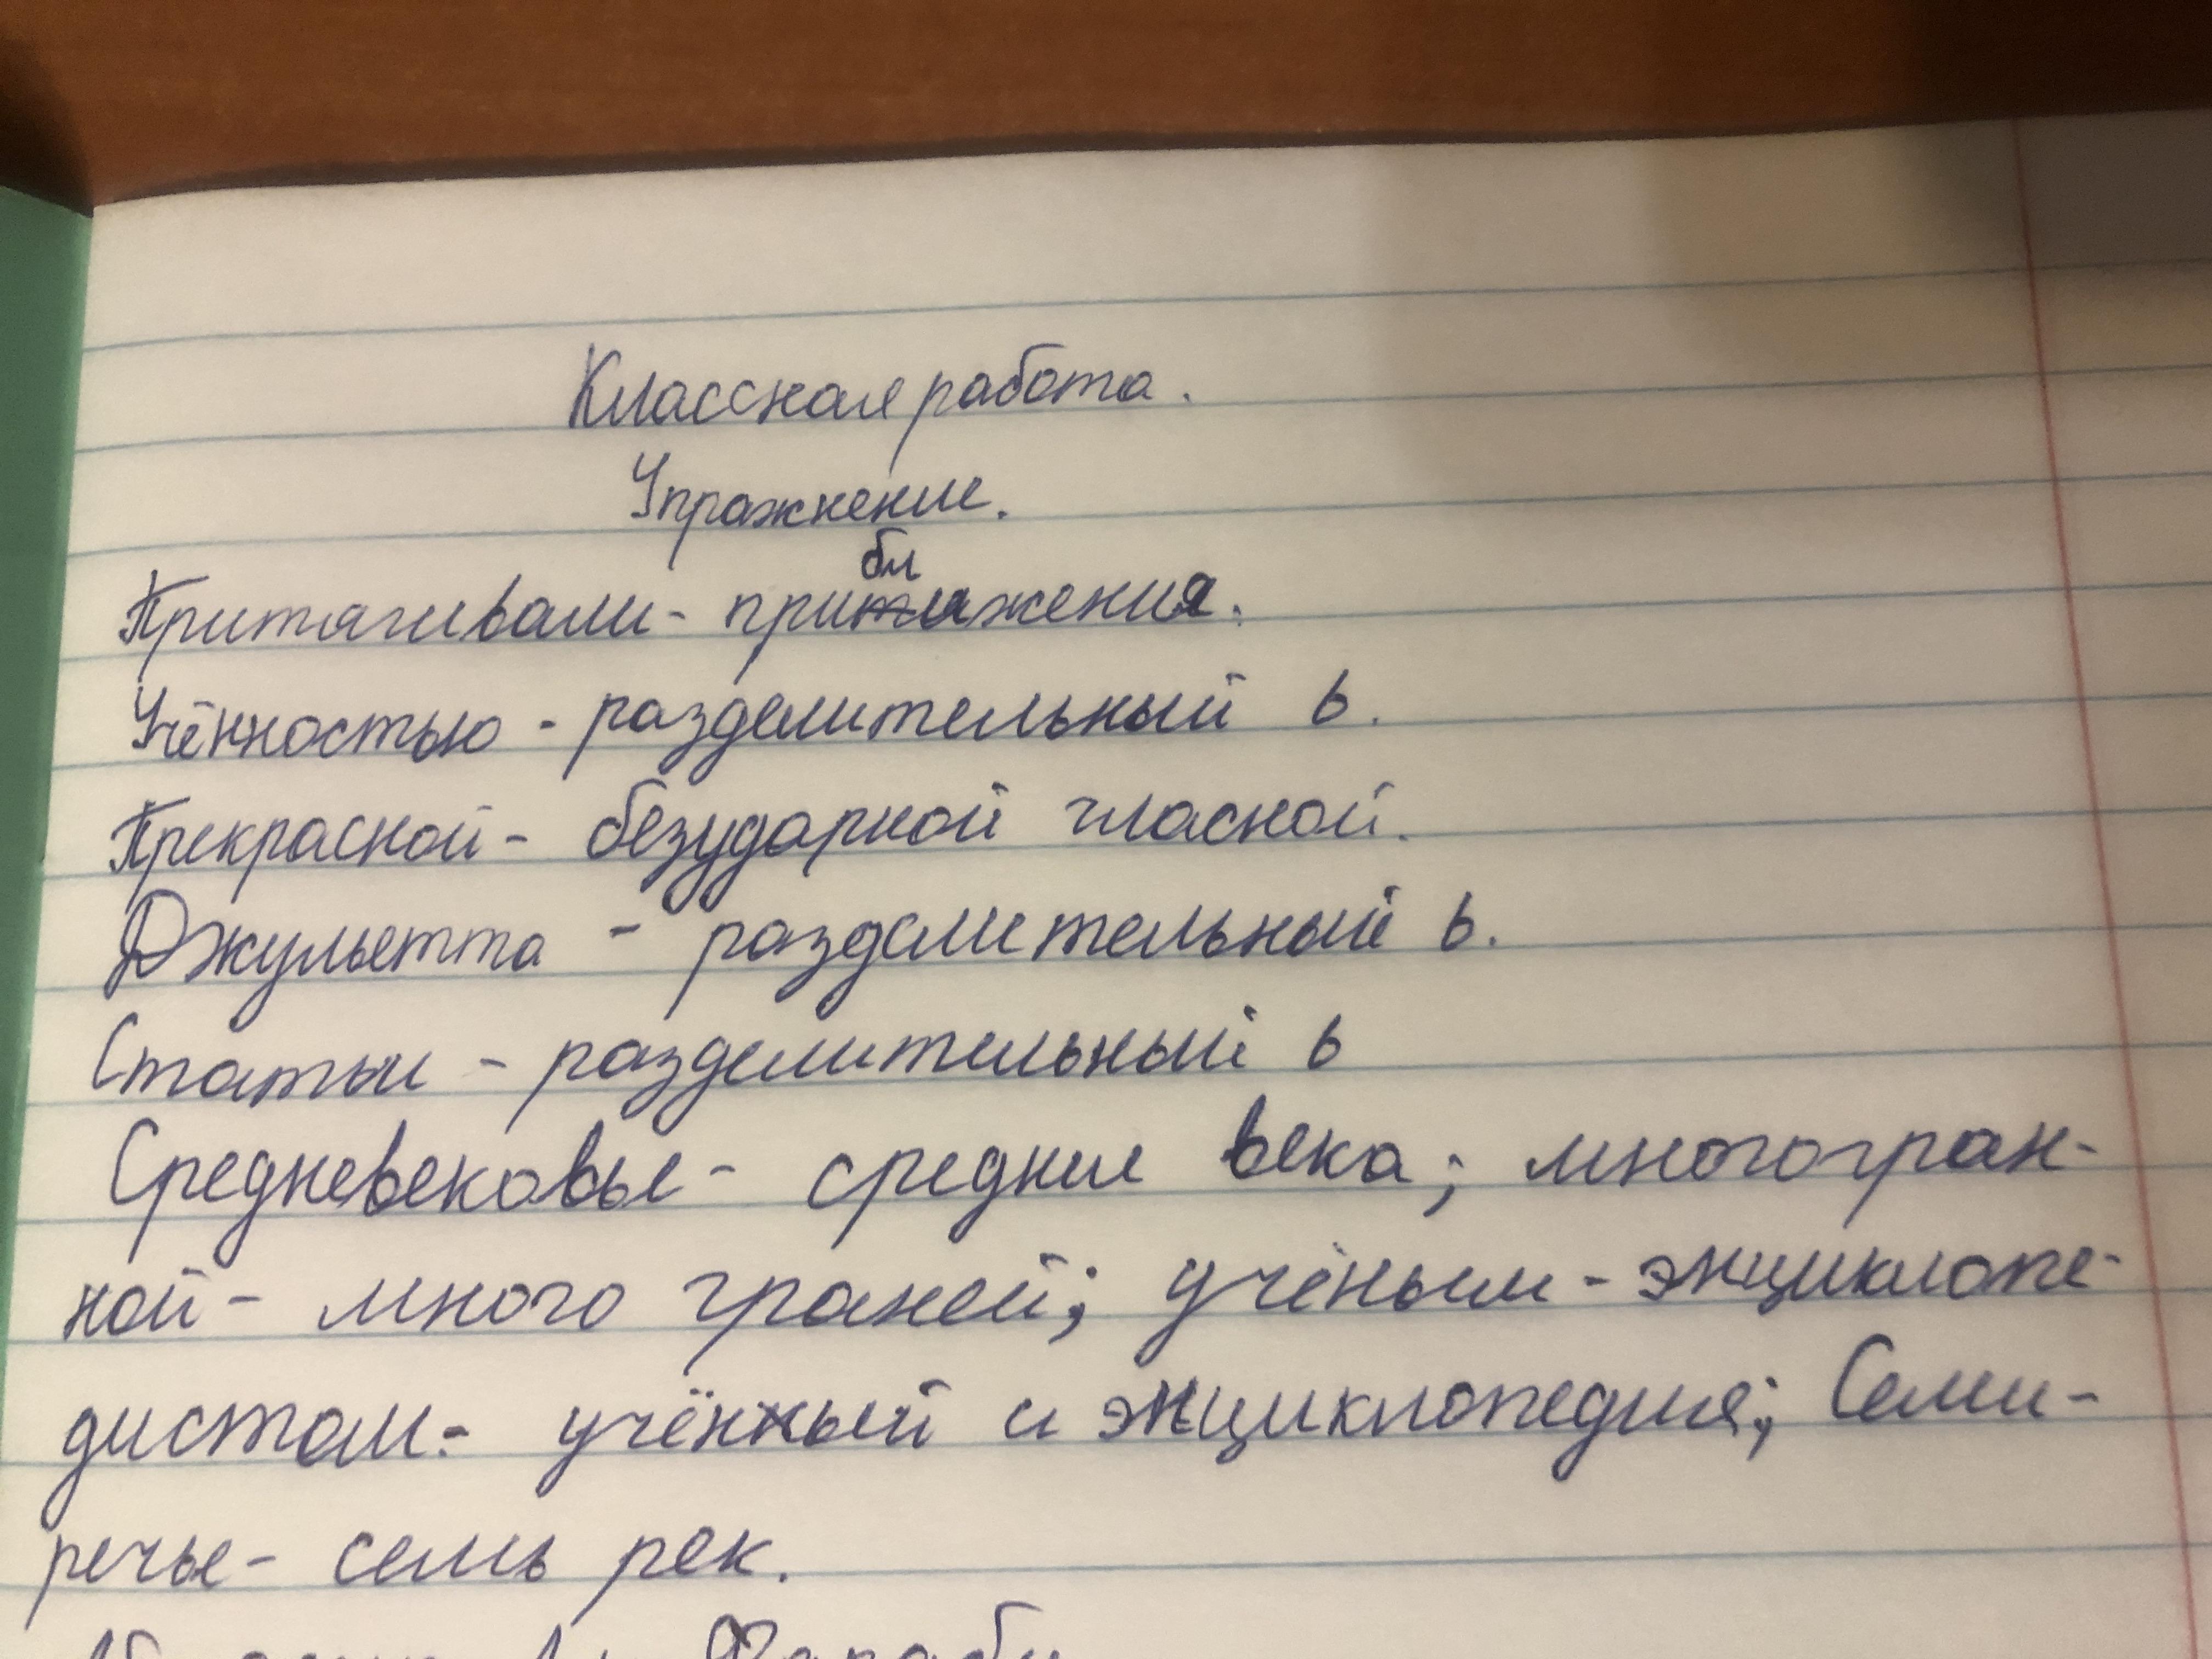 Классная работа.
Упражнение.
бл
Притягивали - притяжения.
Учённостью - разделительный ь.
Прекрасной - безударной гласной.
Джульетта - разделительный ь.
Статьи - разделительный ь
Средневековье - средние века; многогран-
ной - много граней; учёным - энциклопе-
дистом - учённый и энциклопедия; Семи-
речье - семь рек.